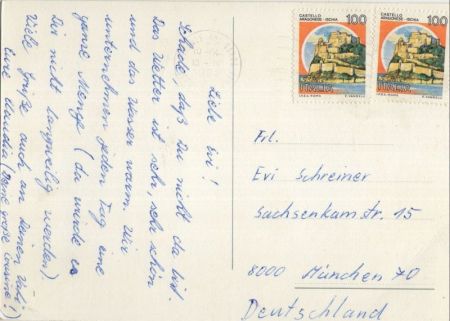 Liebe Evi!
Schade, daß Du nicht da bist.
Das Wetter ist sehr, sehr schön
und das Wasser warm. Wir
unternehmen jeden Tag eine
ganze Menge (da würde es
Dir nicht langweilig werden).
Viele Grüße auch an Deinen Vati!
Eure Claudia (Deine große Cousine!)
CASTELLO
ARAGONESE - ISCHIA
100
ITALIA
I.P.Z.S. ROMA
CASTELLO
ARAGONESE - ISCHIA
100
ITALIA
I.P.Z.S. ROMA
Frl.
Evi Schreiner
Sachsenkamstr. 15
8000 München 70
Deutschland